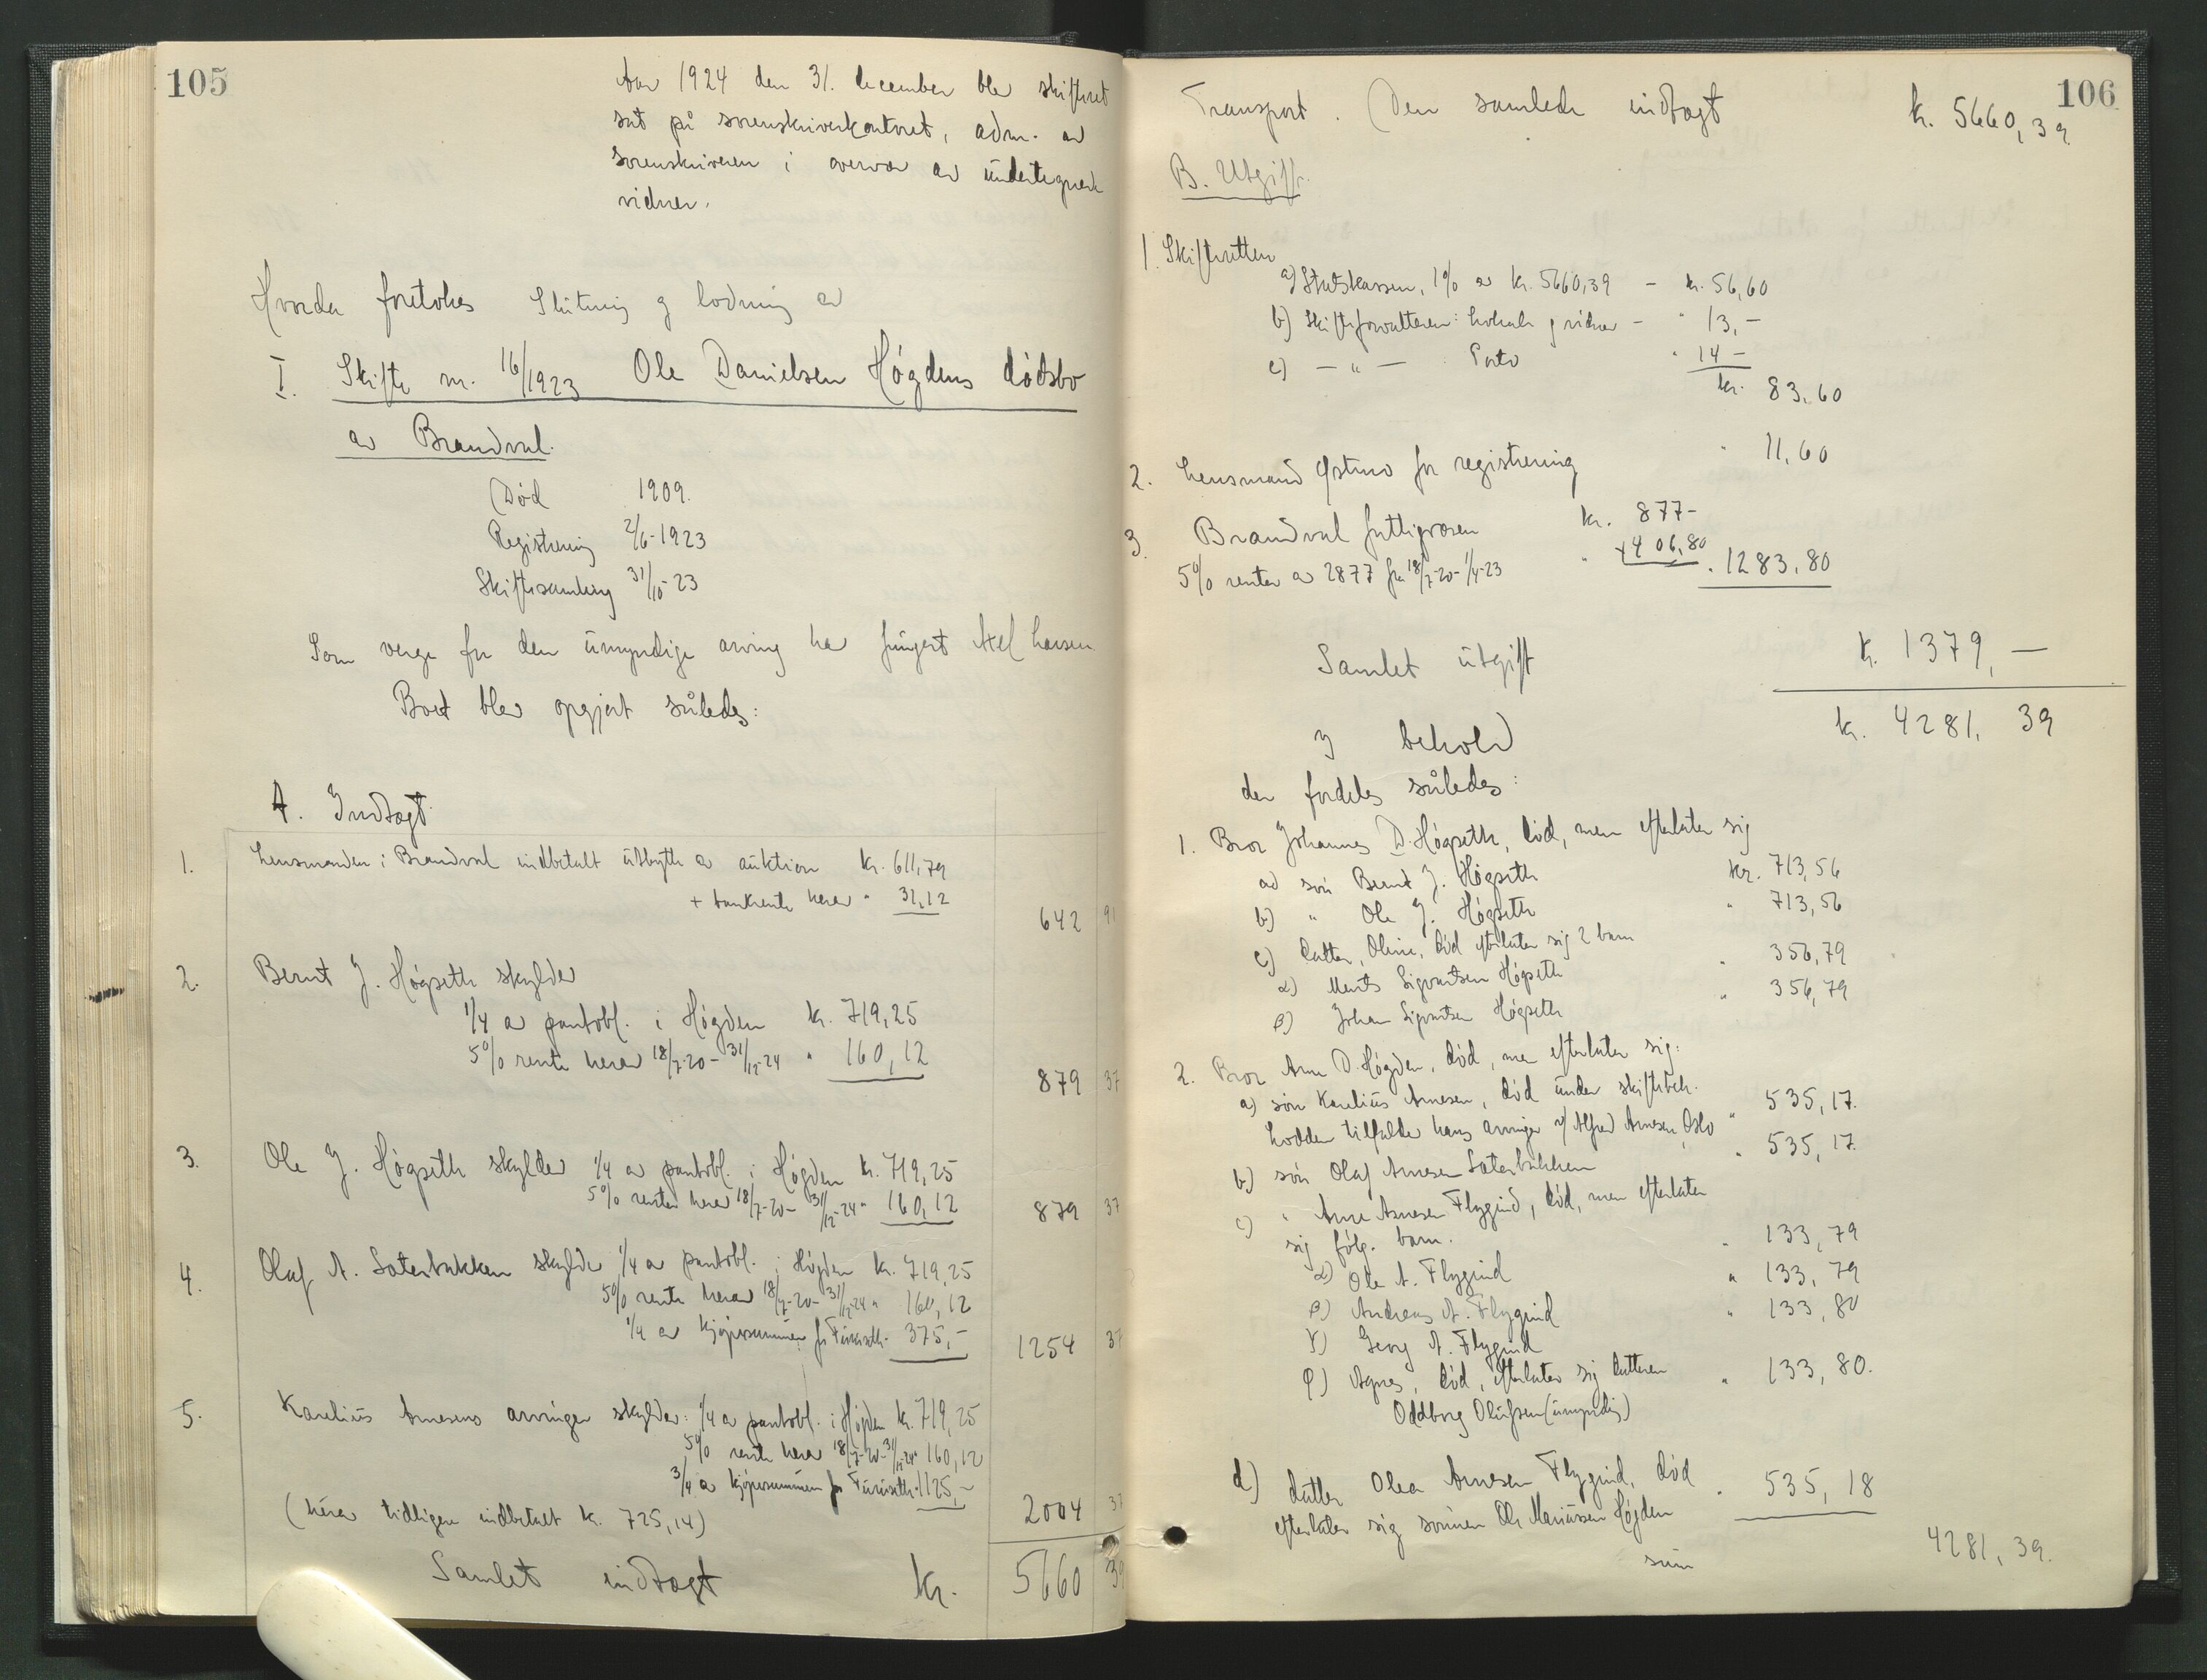 105
Aar 1924 den 31. december blev skifteret
sat på sorenskriverkontoret, adm. av
sorenskriveren i overvær av undertegnede
vidner.
Hvorda foretokes Slutning og lodning av
I. Skifte nr. 16/1923 Ole Danielsen Høgdens dødsbo
av Brandval.
Død 1909.
Registrering 2/6-1923
Skiftesamling 31/10-23
Som verge for den umyndige arving har fungert Axel Larsen
Boet blev opgjort således:
A. Indtægt
1. Lensmanden i Brandval indbetalt utbytte av auktion kr. 611,79
+ bankrente herav " 31,12
642 91
2. Bernt J. Høgseth skylder
1/4 av pantobl. i Høgden kr. 719,25
5% rente herav 18/7-20 - 31/12-24 " 160,12
879 37
3. Ole J. Høgseth skylder 1/4 av pantobl. i Høgden kr. 719,25
5% renter herav 18/7-20 - 31/12-24 " 160,12
879 37
4. Olaf A. Sæterbakken skylder 1/4 av pantobl. i Høgden kr. 719,25
5% rente herav 18/7-20 - 31/12-24 " 160,12
1/4 av kjøpesummen for Furuseth " 375,-
1254 37
5. Karelius Arnesens arvinger skylder: 1/4 av pantobl. i Høgden kr. 719,25
5% rente herav 18/7-20 - 31/12-24 " 160,12
3/4 av kjøpesummen for Furuseth " 1125,-
(herav tidligere indbetalt kr. 725,14)
2004 37
Samlet indtægt kr. 5660 39
106
Transport. Den samlede indtægt kr. 5660,39
B. Utgift.
1. Skifteretten
a) Statskassen, 1% av kr. 5660,39 - kr. 56,60
b) Skifteforvalteren: lokale og vidner - " 13,-
c) - " - Porto " 14 -
kr. 83,60
2. Lensmand Østmo for registrering " 11,60
3. Brandval fattigvæsen kr. 877-
5% renter av 2877 fra 18/7-20 - 1/4-23 " + 406,80
" 1283,80
Samlet utgift kr. 1379,—
I behold kr. 4281,39
der fordeles således:
1. Bror Johannes D. Høgseth, død, men efterlater sig
a) søn Bernt J. Høgseth kr. 713,56
b) " Ole J. Høgseth " 713,56
c) datter, Oline, død efterlater sig 2 barn
α) Marits Sigvartsen Høgseth " 356,79
β) Johan Sigvartsen Høgseth " 356,79
2. Bror Arne D. Høgden, død, men efterlater sig:
a) søn Karelius Arnesen, død under skiftebeh.
Lodden tilfalder hans arvinger v/ Alfred Arnesen, Oslo " 535,17.
b) søn Olaf Arnesen Sæterbakken " 535,17.
c) " Arne Arnesen Flygind, død, men efterlater
sig følg. barn.
α) Ole A. Flygind " 133,79
β) Andreas A. Flygind " 133,79
γ) Georg A. Flygind " 133,80
φ) Agnes, død, efterlater sig datteren " 133,80.
Oddborg Olufsen (umyndig)
d) datter Olea Arnesen Flygind, død " 535,18
efterlater sig sønnen Ole Mariussen Høgden
sum 4281,39.